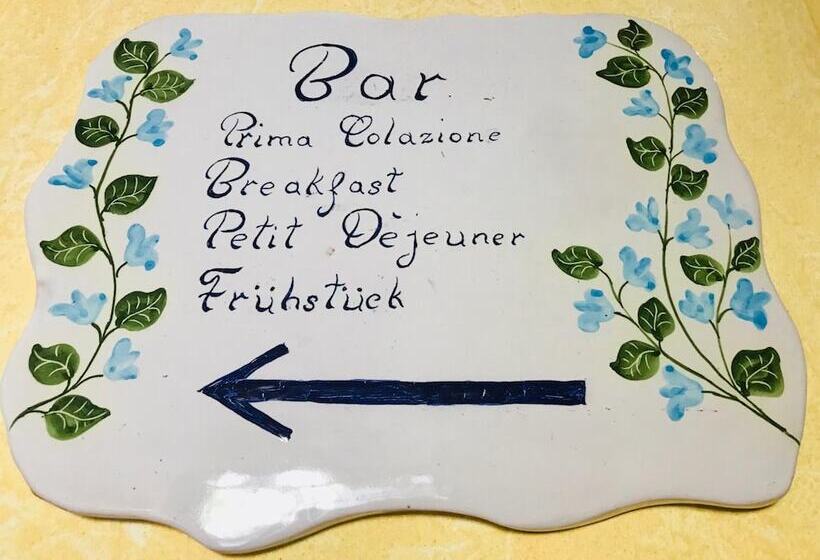 Bar
Prima Colazione
Breakfast
Petit Dèjeuner
Frühstück